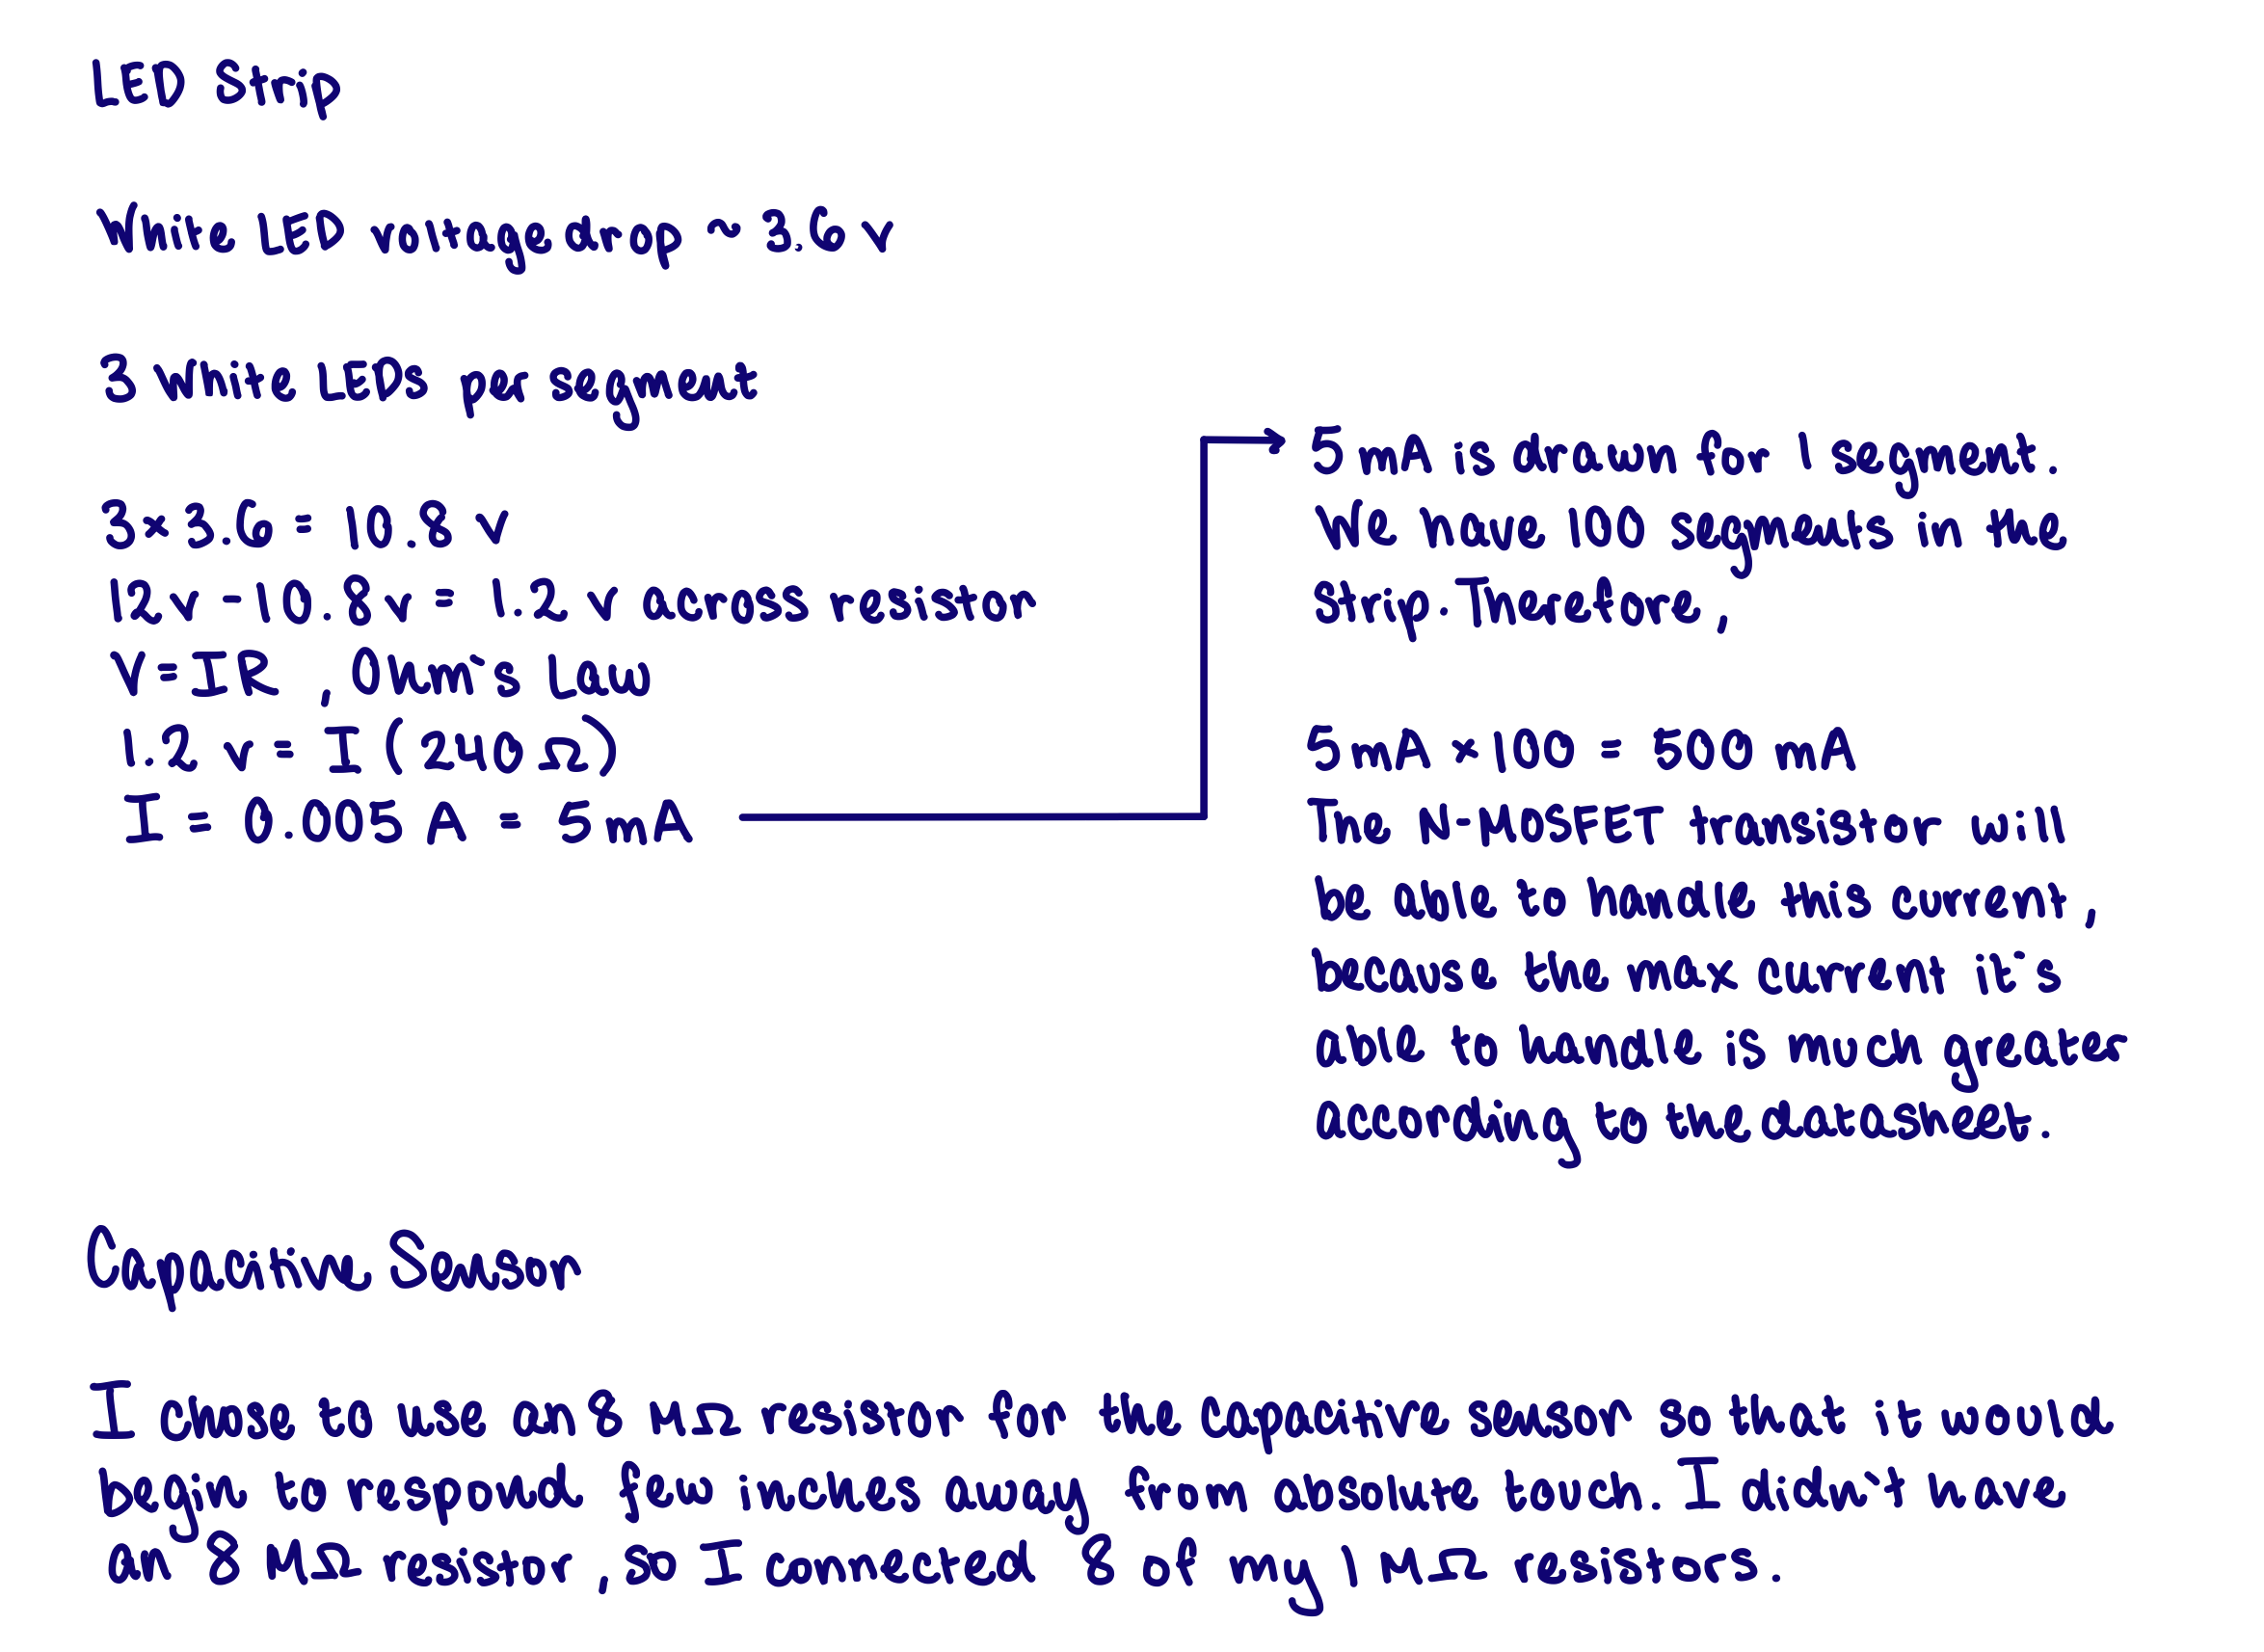 LED Strip
White LED voltage drop ~ 3.6 v
3 White LEDs per segment
3 x 3.6 = 10.8 v
12 v - 10.8 v = 1.2 v across resistor
V = IR , Ohm's Law
1.2 v = I (240 Ω)
I = 0.005 A = 5 mA
5 mA is drawn for 1 segment.
We have 100 segments in the
strip. Therefore,
5 mA x 100 = 500 mA
The N-MOSFET transistor will
be able to handle this current,
because the max current it's
able to handle is much greater
according to the datasheet.
Capacitive Sensor
I chose to use an 8 MΩ resistor for the capacitive sensor so that it would
begin to respond few inches away from absolute touch. I didn't have
an 8 MΩ resistor, so I connected 8 of my 1 MΩ resistors.